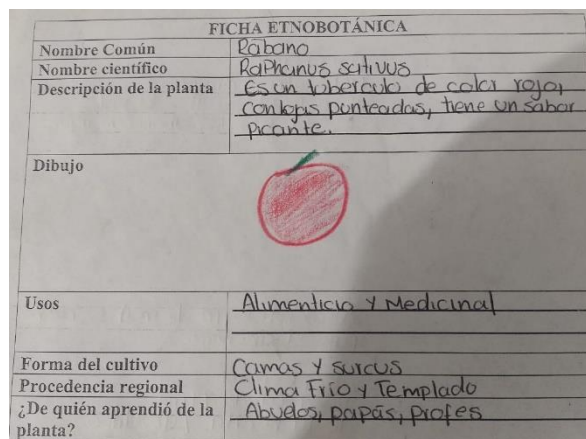 FICHA ETNOBOTÁNICA
Nombre Común Rábano
Nombre científico Raphanus sativus
Descripción de la planta Es un tuberculo de color rojo,
con hojas punteadas, tiene un sabor
picante.
Dibujo
Usos Alimenticio y Medicinal
Forma del cultivo Camas y surcos
Procedencia regional Clima Frio y Templado
¿De quién aprendió de la Abuelos, papás, profes
planta?